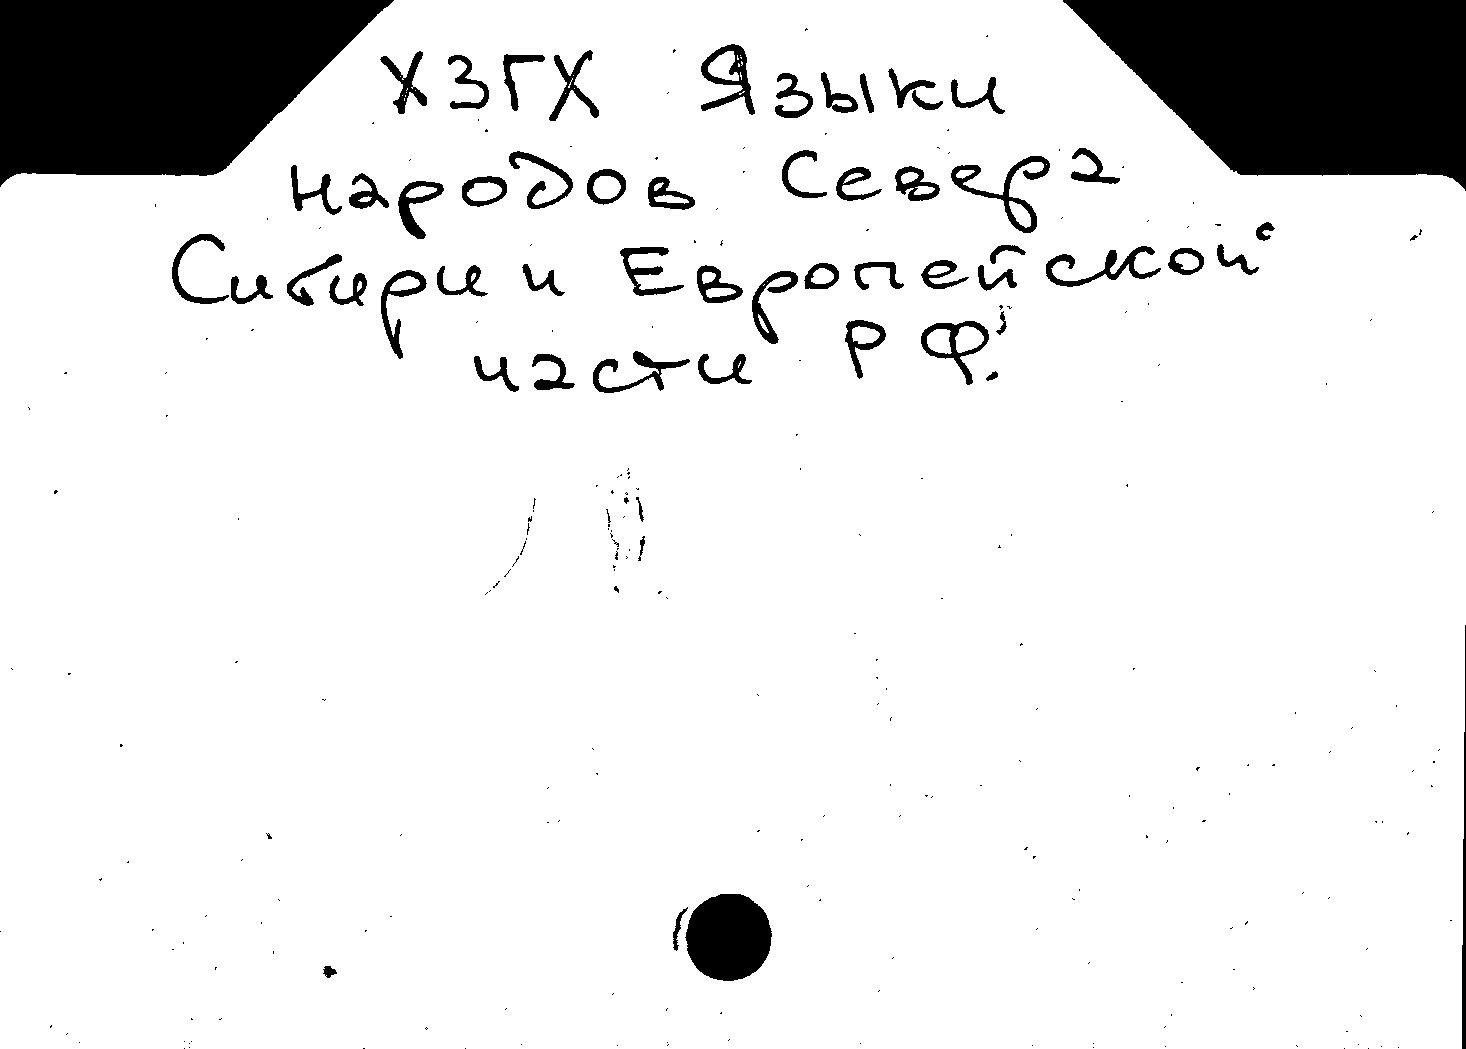 ХЗГХ Языки
народов Севера
Сибири и Европейской
части РФ.